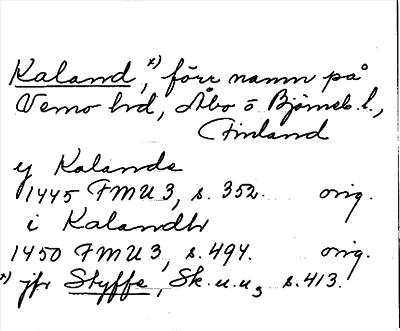 Kaland,*) förr namn på
Vemo hd, Åbo o Björneb. l.,
Finland
y Kalande
1445 FMU 3, s. 352. orig.
i Kalandh
1450 FMU 3, s. 494. orig.
*) jfr Styffe, Sk. u. u, s. 413.